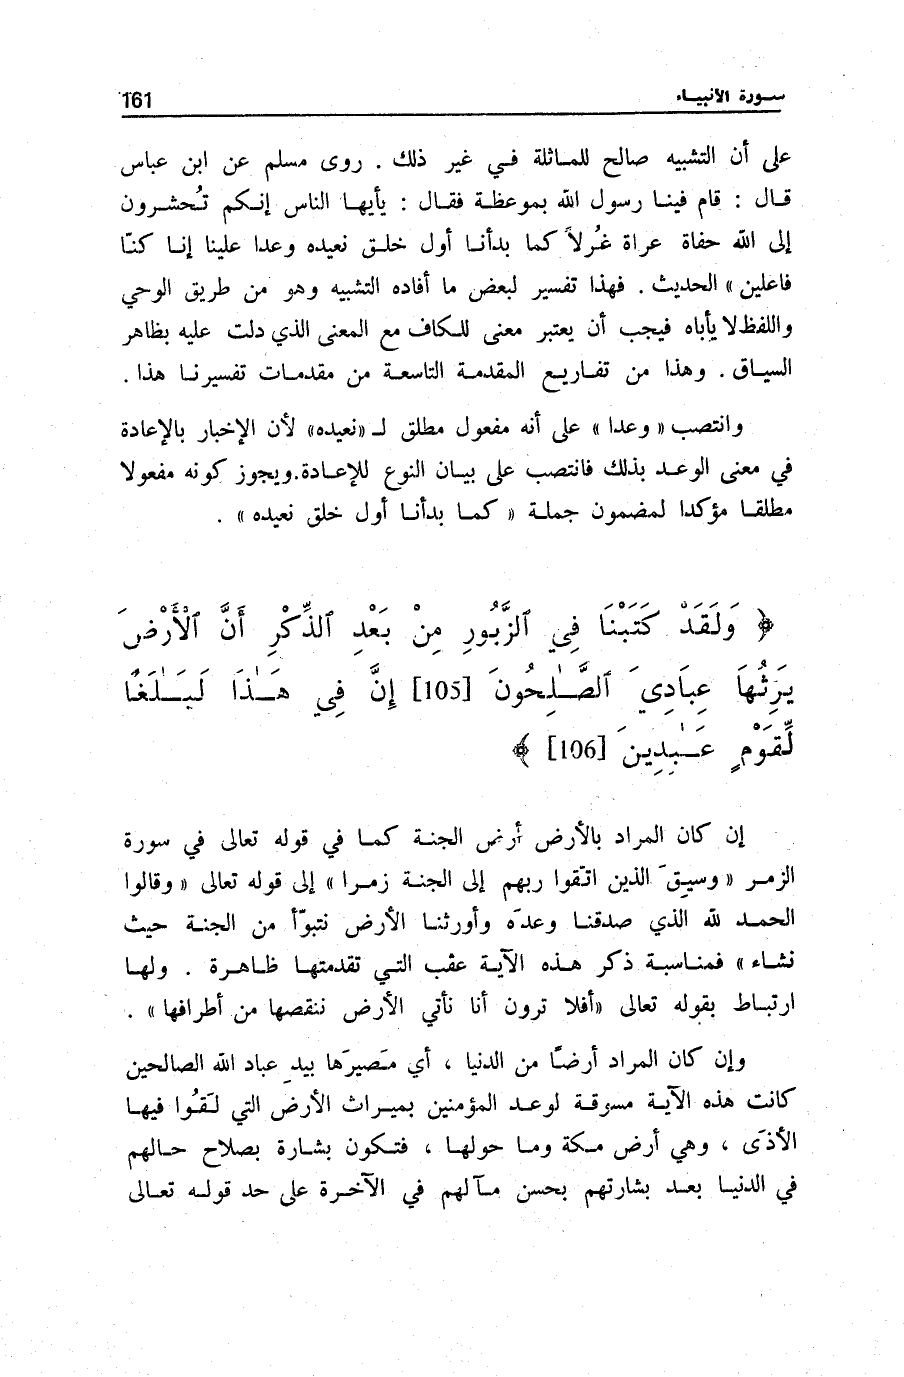 سورة الأنبياء 161
على أن التشبيه صالح للماثلة في غير ذلك . روى مسلم عن ابن عباس
قال : قام فينا رسول الله بموعظة فقال : يأيها الناس إنكم تُحشرون
إلى الله حفاة عراة غُرلاً كما بدأنا أول خلق نعيده وعدا علينا إنا كنّا
فاعلين » الحديث . فهذا تفسير لبعض ما أفاده التشبيه وهو من طريق الوحي
واللفظ لا يأباه فيجب أن يعتبر معنى للكاف مع المعنى الذي دلت عليه بظاهر
السياق . وهذا من تفاريع المقدمة التاسعة من مقدمات تفسيرنا هذا .
وانتصب « وعدا » على أنه مفعول مطلق لـ «نعيده» لأن الإخبار بالإعادة
في معنى الوعد بذلك فانتصب على بيان النوع للإعادة.ويجوز كونه مفعولا
مطلقا مؤكدا لمضمون جملة « كما بدأنا أول خلق نعيده » .
﴿ وَلَقَدْ كَتَبْنَا فِي ٱلزَّبُورِ مِنْ بَعْدِ ٱلذِّكْرِ أَنَّ ٱلْأَرْضَ
يَرِثُهَا عِبَادِيَ ٱلصَّـٰلِحُونَ [105] إِنَّ فِي هَـٰذَا لَبَـلَـٰغًا
لِّقَوْمٍ عَـٰبِدِينَ [106] ﴾
إن كان المراد بالأرض أرض الجنة كما في قوله تعالى في سورة
الزمر « وسيقَ الذين اتّقوا ربهم إلى الجنة زمرا » إلى قوله تعالى « وقالوا
الحمد لله الذي صدقنا وعدَه وأورثنا الأرض نتبوّأ من الجنة حيث
نشاء » فمناسبة ذكر هذه الآية عقب التي تقدمتها ظاهرة . ولها
ارتباط بقوله تعالى «أفلا ترون أنا نأتي الأرض ننقصها من أطرافها » .
وإن كان المراد أرضًا من الدنيا ، أي مَصيرَها بيدِ عباد الله الصالحين
كانت هذه الآية مسوقة لوعد المؤمنين بميراث الأرض التي لَقُوا فيها
الأذَى ، وهي أرض مكة وما حولها ، فتكون بشارة بصلاح حالهم
في الدنيا بعد بشارتهم بحسن مآلهم في الآخرة على حد قوله تعالى